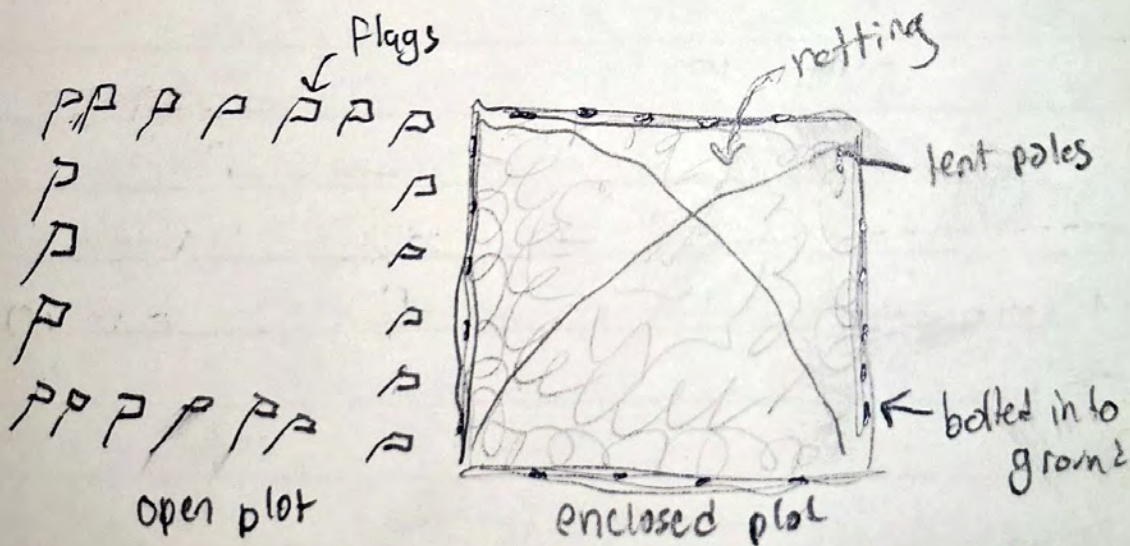 Flags
netting
tent poles
bolted into
ground
open plot
enclosed plot